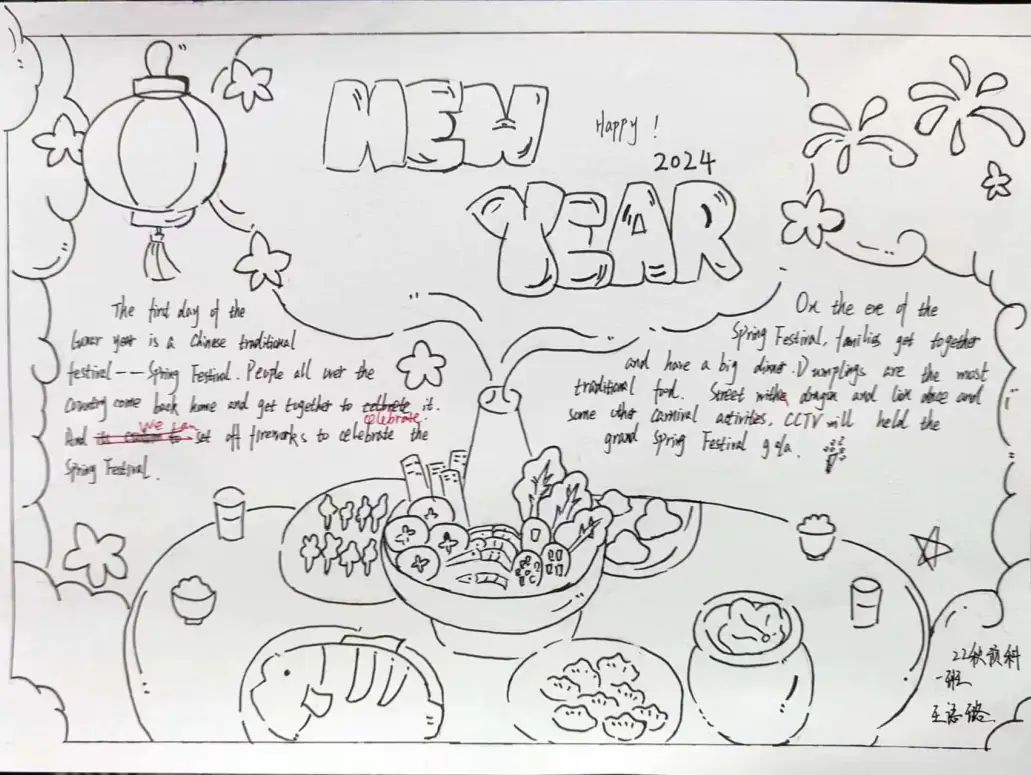 NEW
Happy !
2024
YEAR
The first day of the
lunar year is a Chinese traditional
festival——Spring Festival. People all over the
country come back home and get together to celebrate it.
celebrate.
And we can set off fireworks to celebrate the
Spring Festival.
On the eve of the
Spring Festival, families get together
and have a big dinner. Dumplings are the most
traditional food. Street withe dragon and lion dance and
some other carnival activities, CCTV will held the
grand Spring Festival gala.
22秋预科
一班